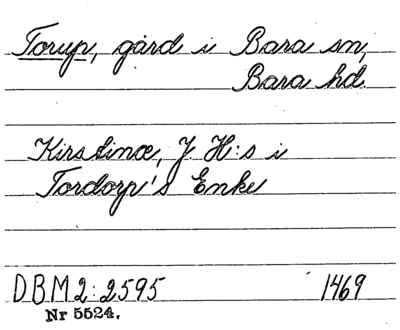 Torup, gård i Bara sn,
Bara hd.
Kirstinæ, J. H:s i
Tordorp's Enke
DBM 2:2595 1469
Nr 5524.